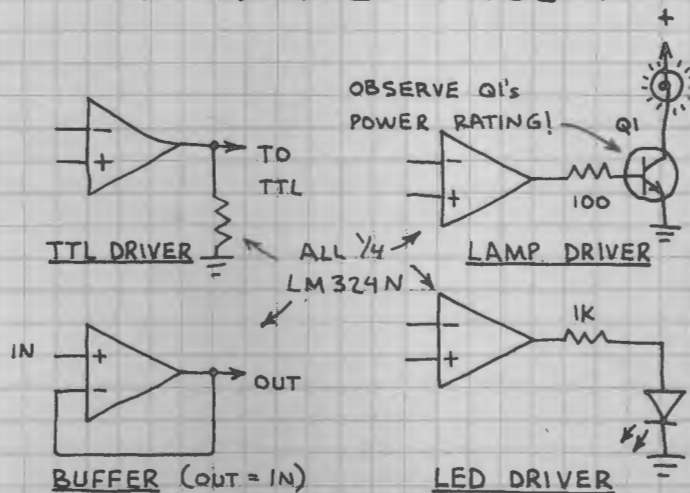 OBSERVE Q1's
POWER RATING!
Q1
+
-
+
TO
TTL
-
+
100
TTL DRIVER
ALL 1/4
LM324N
LAMP DRIVER
IN
+
-
OUT
-
+
1K
BUFFER (OUT = IN)
LED DRIVER